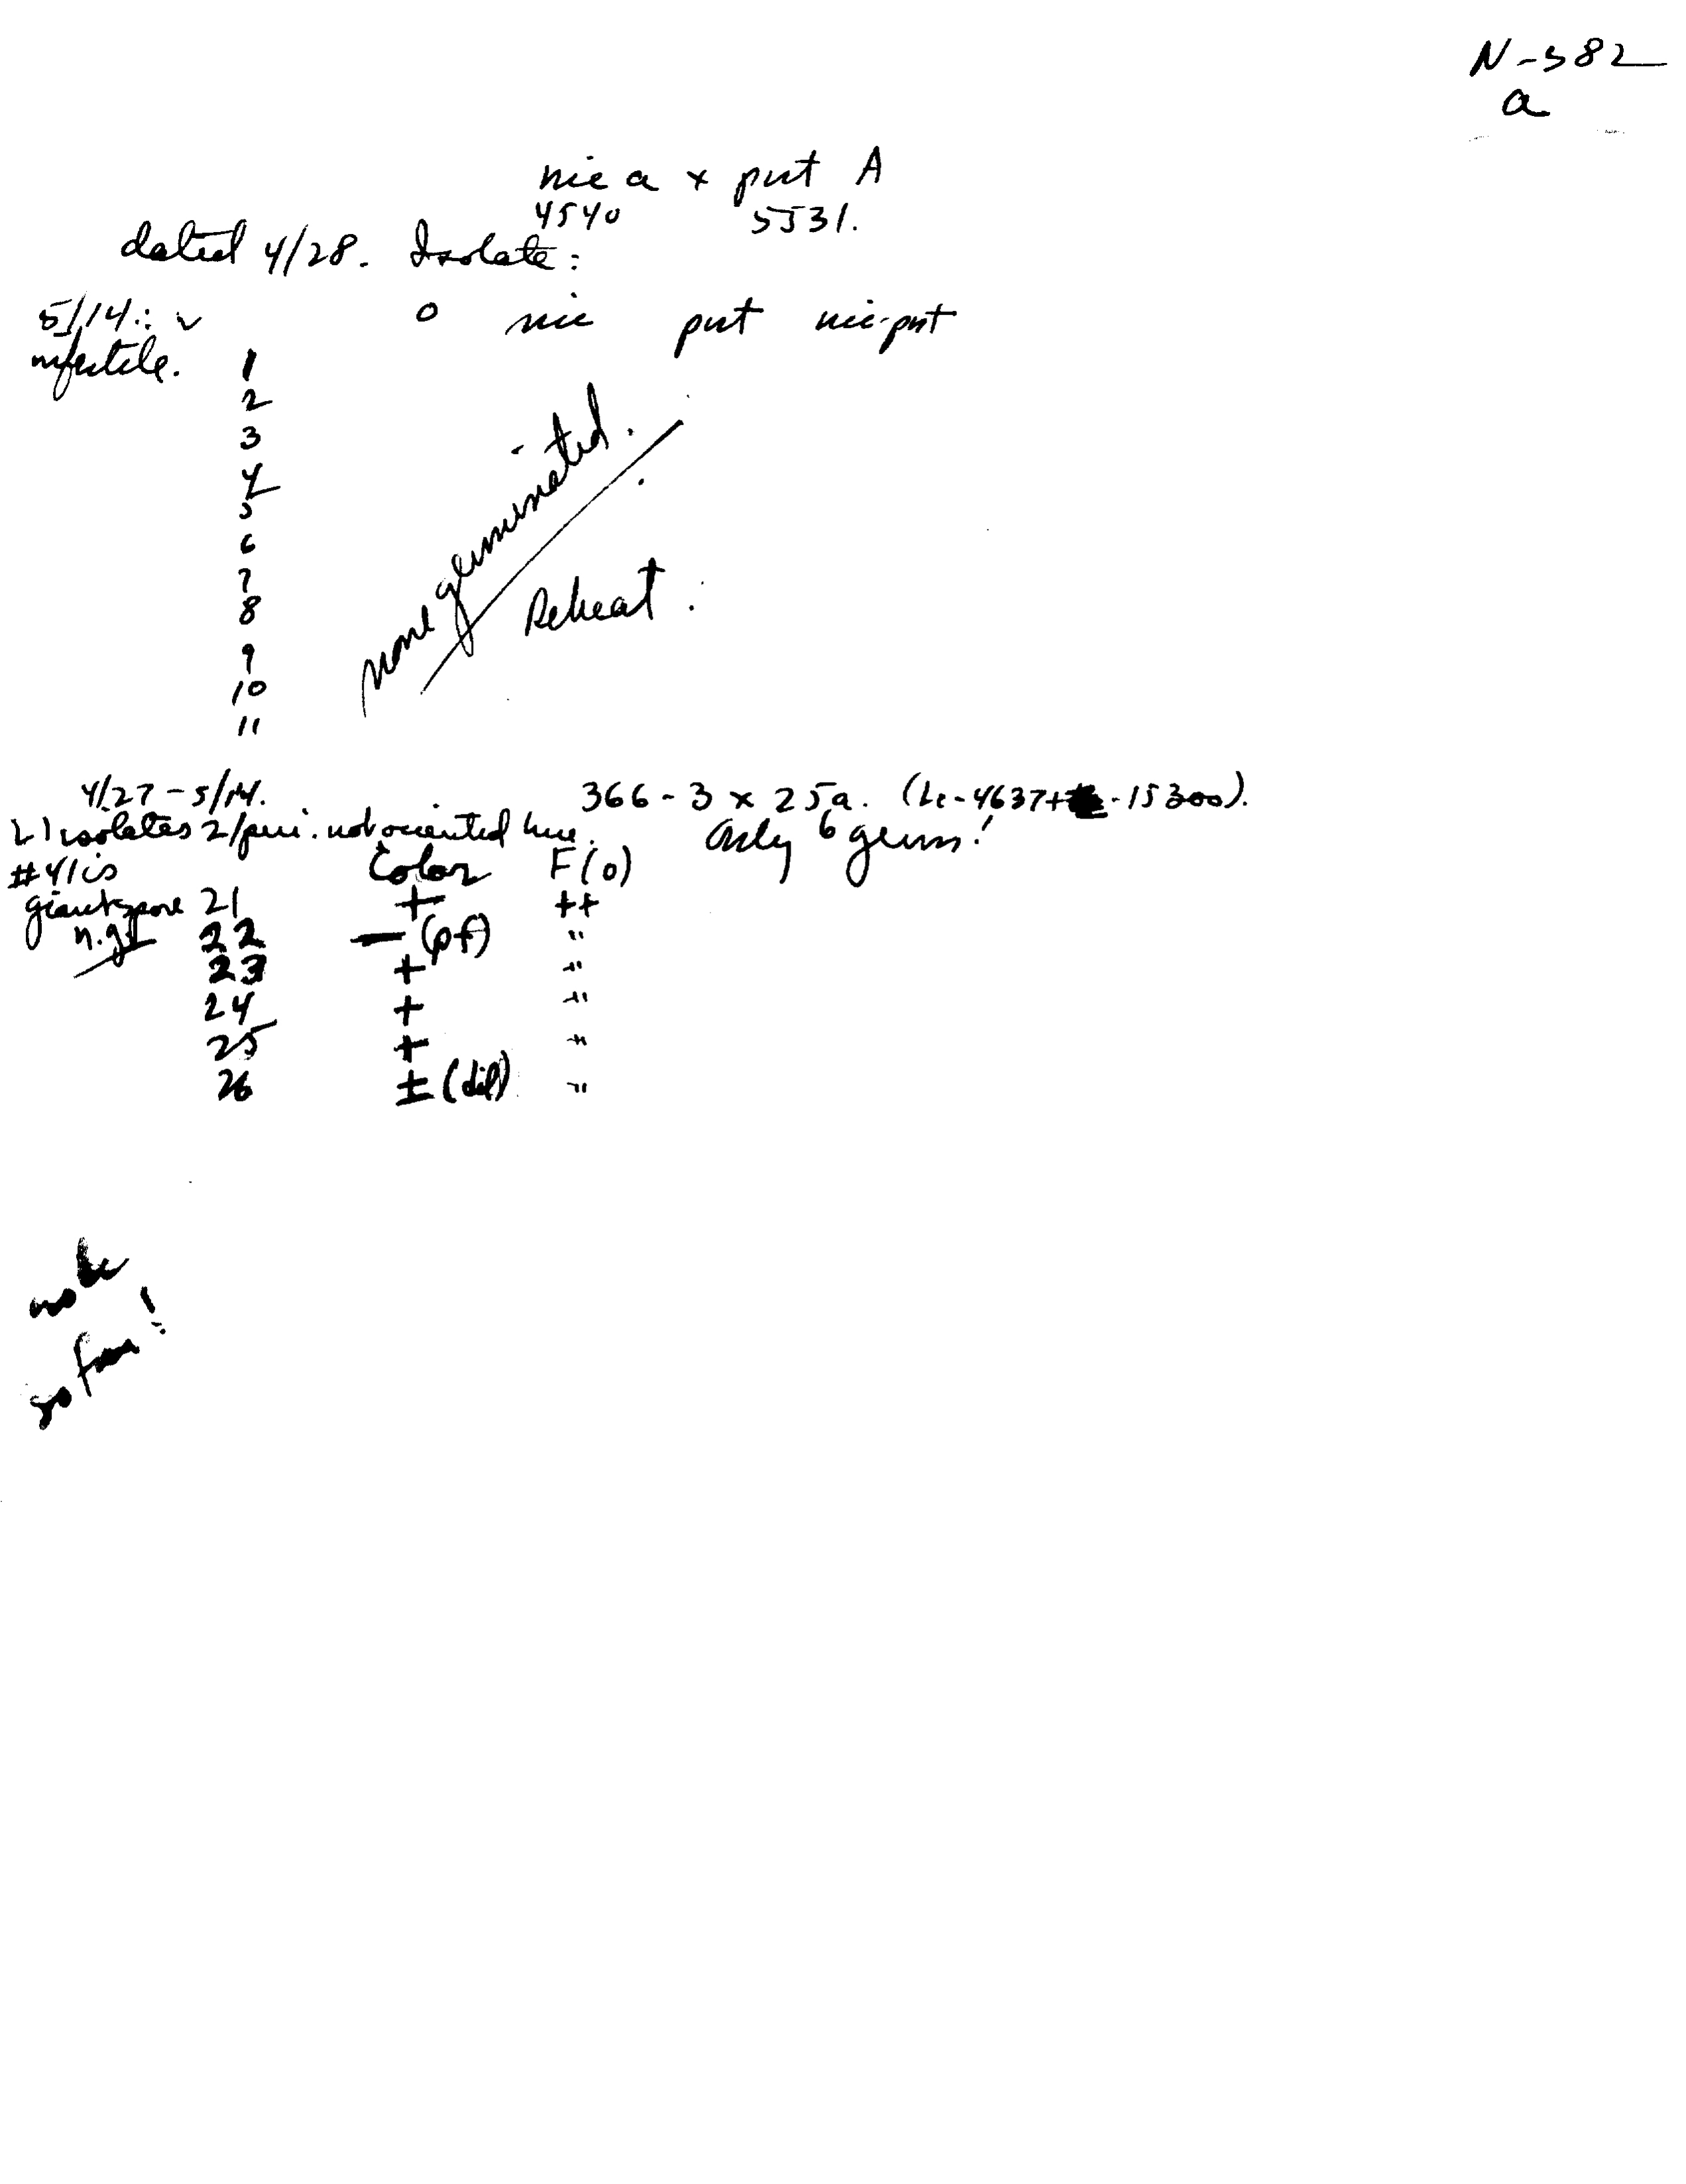 N-582
a
nic a x put A
4540 5531.
dated 4/28. Isolate:
5/14:
infertile.
o nic put nic-put
1
2
3
4
5
6
7
8
9
10
11
none germinated.
Reheat.
4/27-5/14. 366-3 x 25a. (Lc-4637+ -15300).
21 isolates 2/peri. not oriented here. Only 6 germ!
#41 is
giant spore
Color F(o)
21 + ++
22 - (pf) "
23 + "
24 + "
25 + "
26 ± (dil) "
no lc
so far!